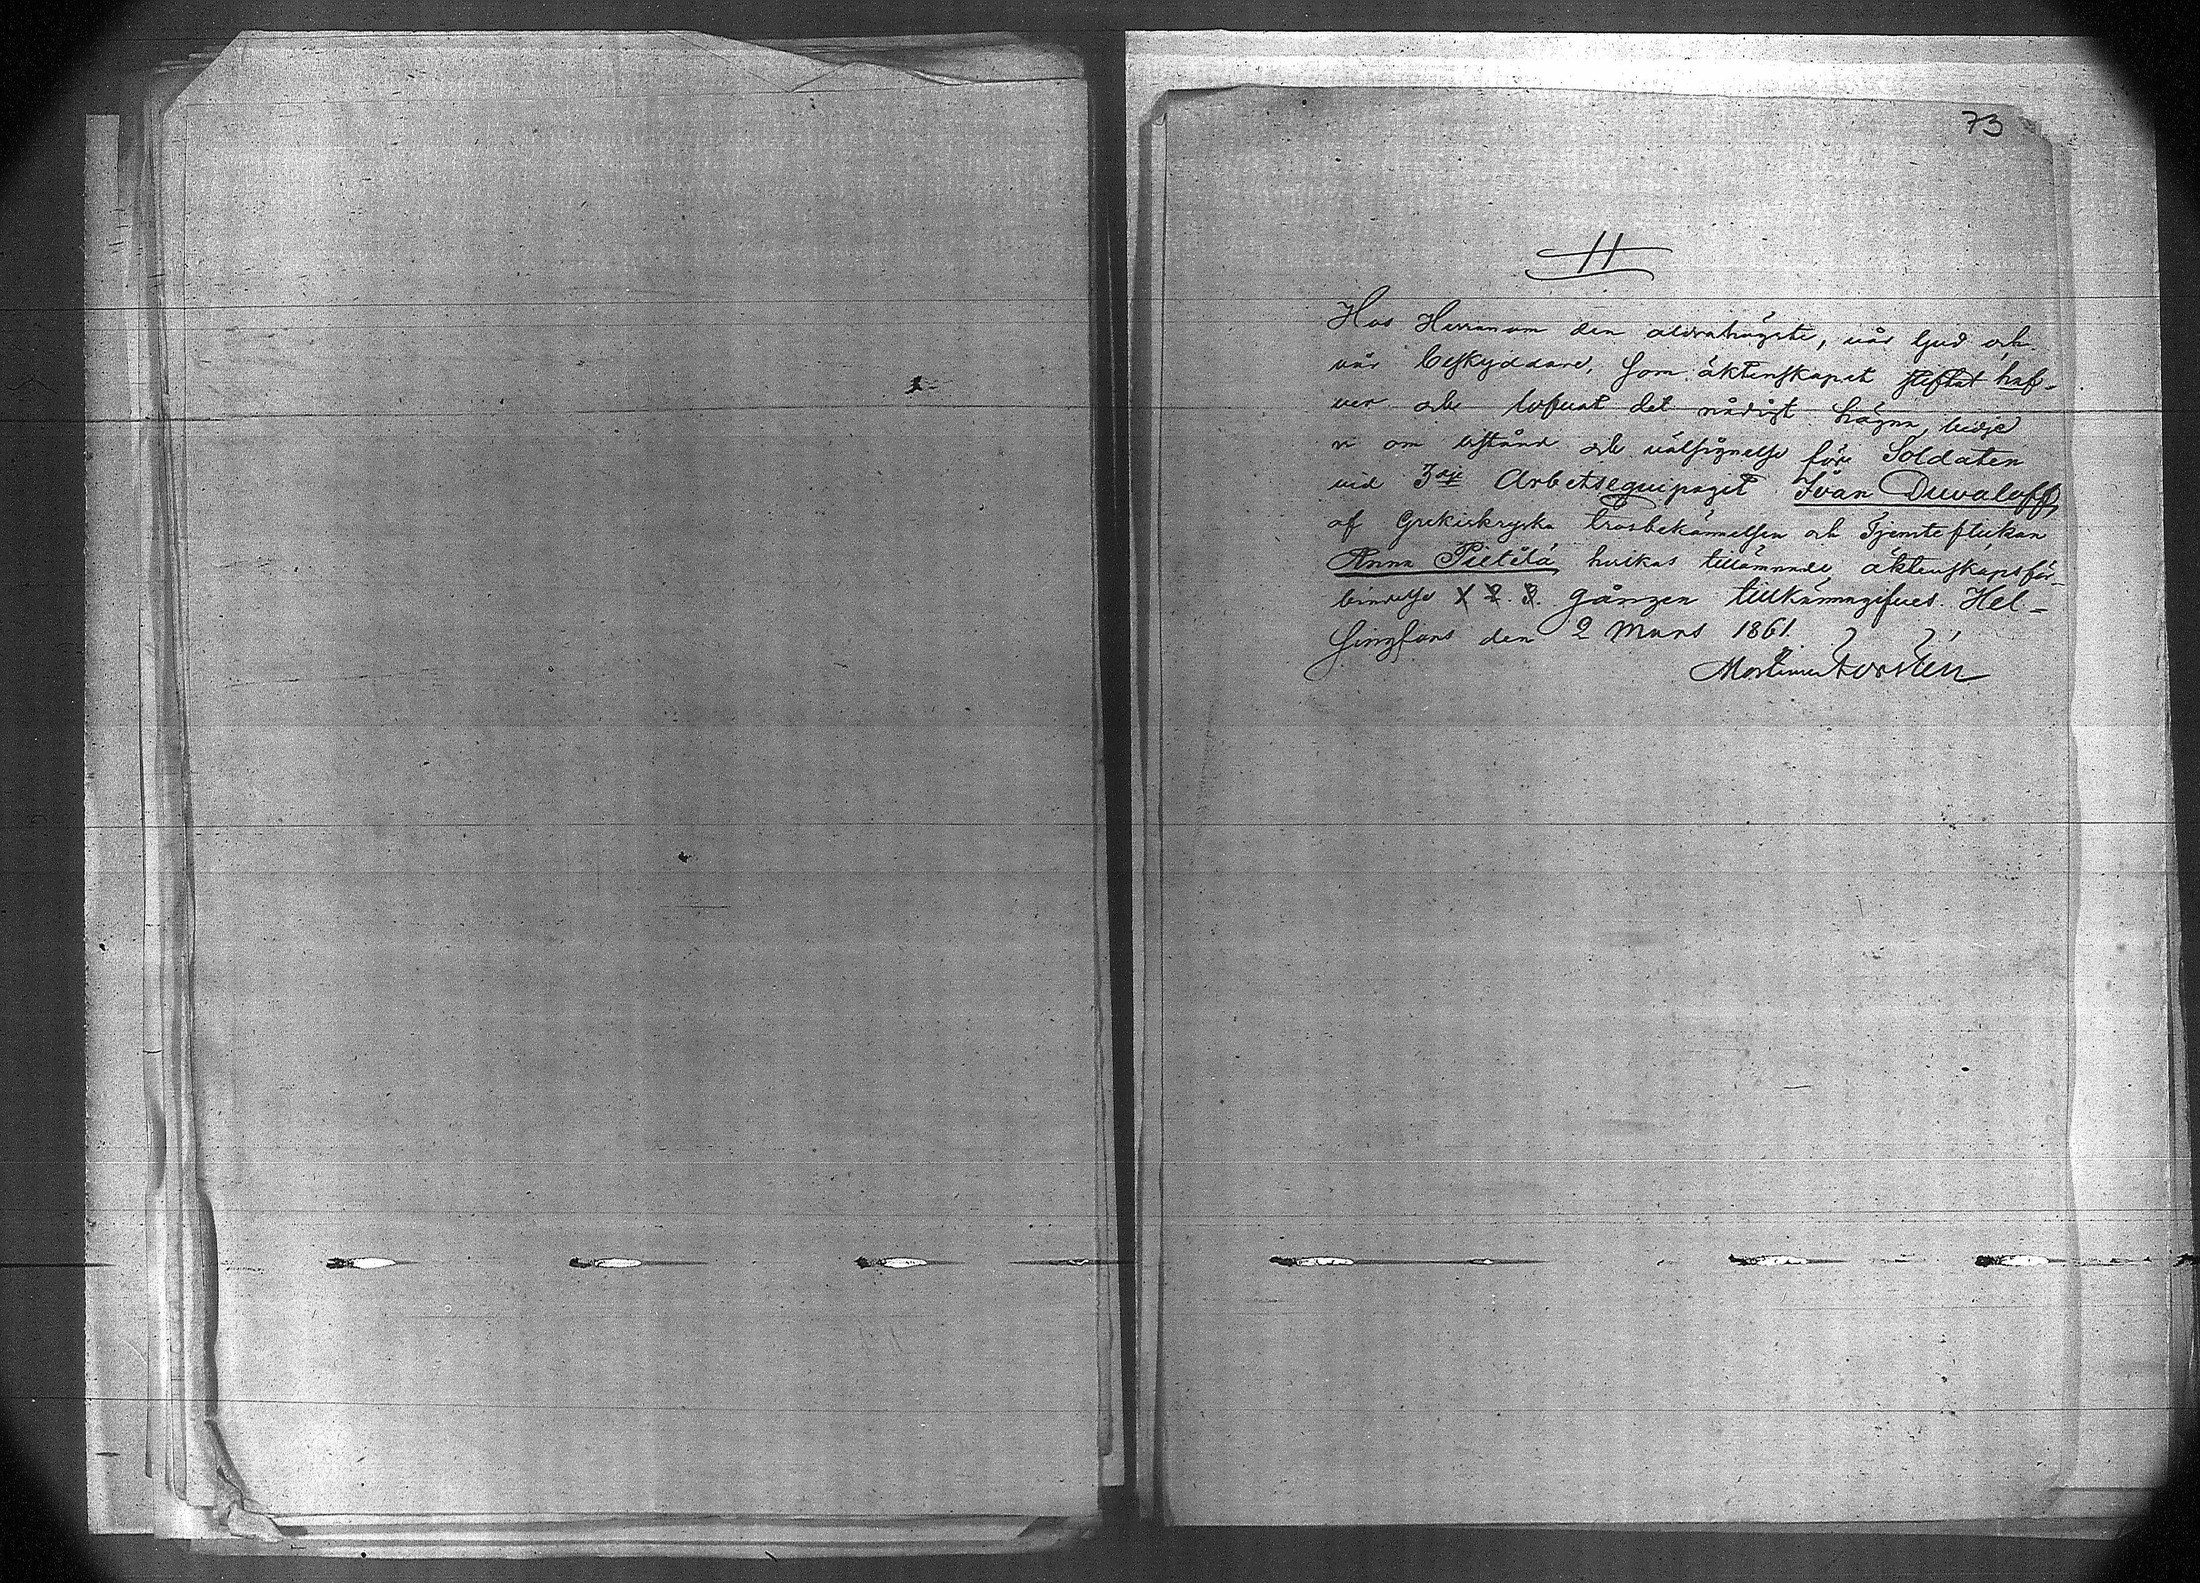 73
11
Hos Herranom den aldrahögste, vår Gud och
vår beskyddare, som äktenskapet stiftat haf-
ver och lofvat det nådigt hägna, bidje
vi om bistånd och välsignelse före Soldaten
vid 3dje Arbetsequipaget Ivan Duvaloff,
af Grekiskryska trosbekännelsen och Tjensteflickan
Anna Pietilä, hvilkas tillämnade äktenskapsför-
bindelse 1. 2. 3. gången tillkännagifves. Hel-
singfors den 2 Mars 1861.